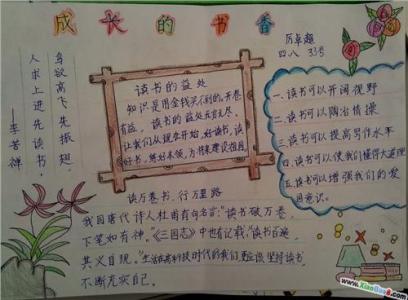 成长的书香
历卓超
四、八 33号
鸟欲高飞先振翅,
人求上进先读书。
——李苦禅
读书的益处
知识是用金钱买不到的。开卷
有益。读书的益处无穷无尽。
让我们从现在开始,好读书,读
好书,练好本领,为将来建设祖国。
一、读书可以开阔视野
二、读书可以陶冶情操
三、读书可以提高写作水平
四、读书可以使我们懂得大道理
五、读书可以增强我们的爱
国意识。
读万卷书,行万里路
我国唐代诗人杜甫有句名言:“读书破万卷,
下笔如有神。”《三国志》中也有记载:“读书百遍,
其义自现。”生活在高科技时代的我们,更应该坚持读书,
不断充实自己。
www.XiaoBaoB.com